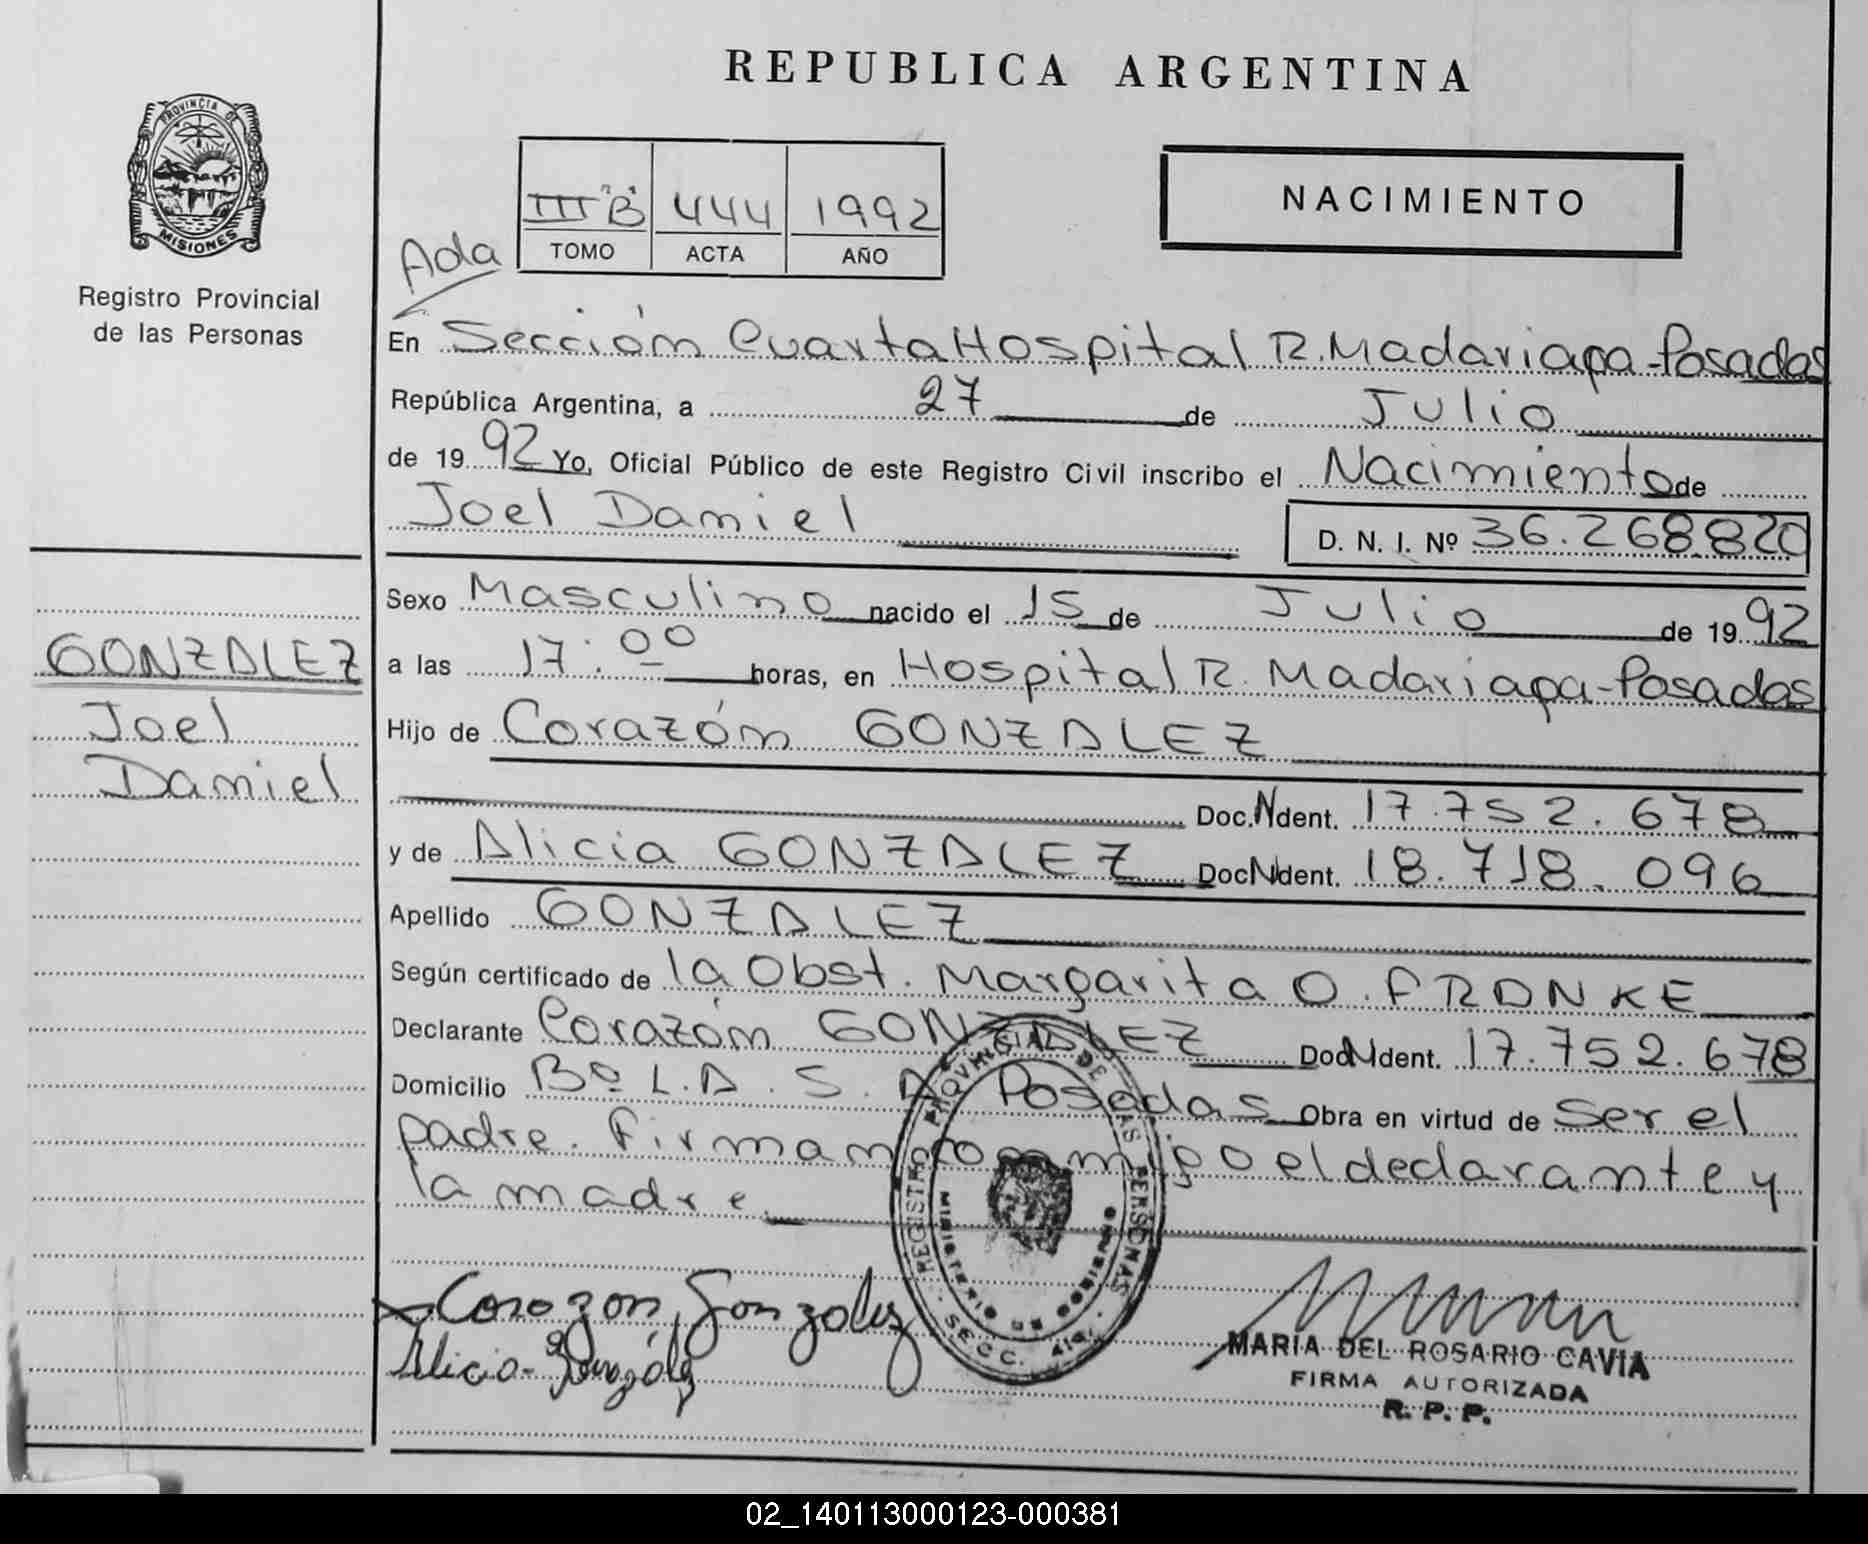 REPUBLICA ARGENTINA
PROVINCIA DE
MISIONES
Registro Provincial
de las Personas
III "B" 444 1992
TOMO ACTA AÑO
NACIMIENTO
Ada
En Sección Cuarta Hospital R. Madariaga-Posadas
República Argentina, a 27 de Julio
de 1992 Yo, Oficial Público de este Registro Civil inscribo el Nacimiento de
Joel Daniel D. N. I. Nº 36.268.820
Sexo Masculino nacido el 15 de Julio de 1992
a las 17:00 horas, en Hospital R. Madariaga-Posadas
Hijo de Corazón GONZALEZ
Doc.N Ident. 17.752.678
y de Alicia GONZALEZ Doc N Ident. 18.718.096
Apellido GONZALEZ
Según certificado de la Obst. Margarita O. FRANKE
Declarante Corazón GONZALEZ Doc N Ident. 17.752.678
Domicilio Bº L.A.S.A Posadas Obra en virtud de ser el
padre. Firman conmigo el declarante y
la madre
GONZALEZ
Joel
Daniel
Corazon Gonzalez
Alicia Gonzáles
REGISTRO PROVINCIAL DE LAS PERSONAS
MINISTERIO DE GOBIERNO
SECC. 4ta.
MARIA DEL ROSARIO CAVIA
FIRMA AUTORIZADA
R. P. P.
02_140113000123-000381